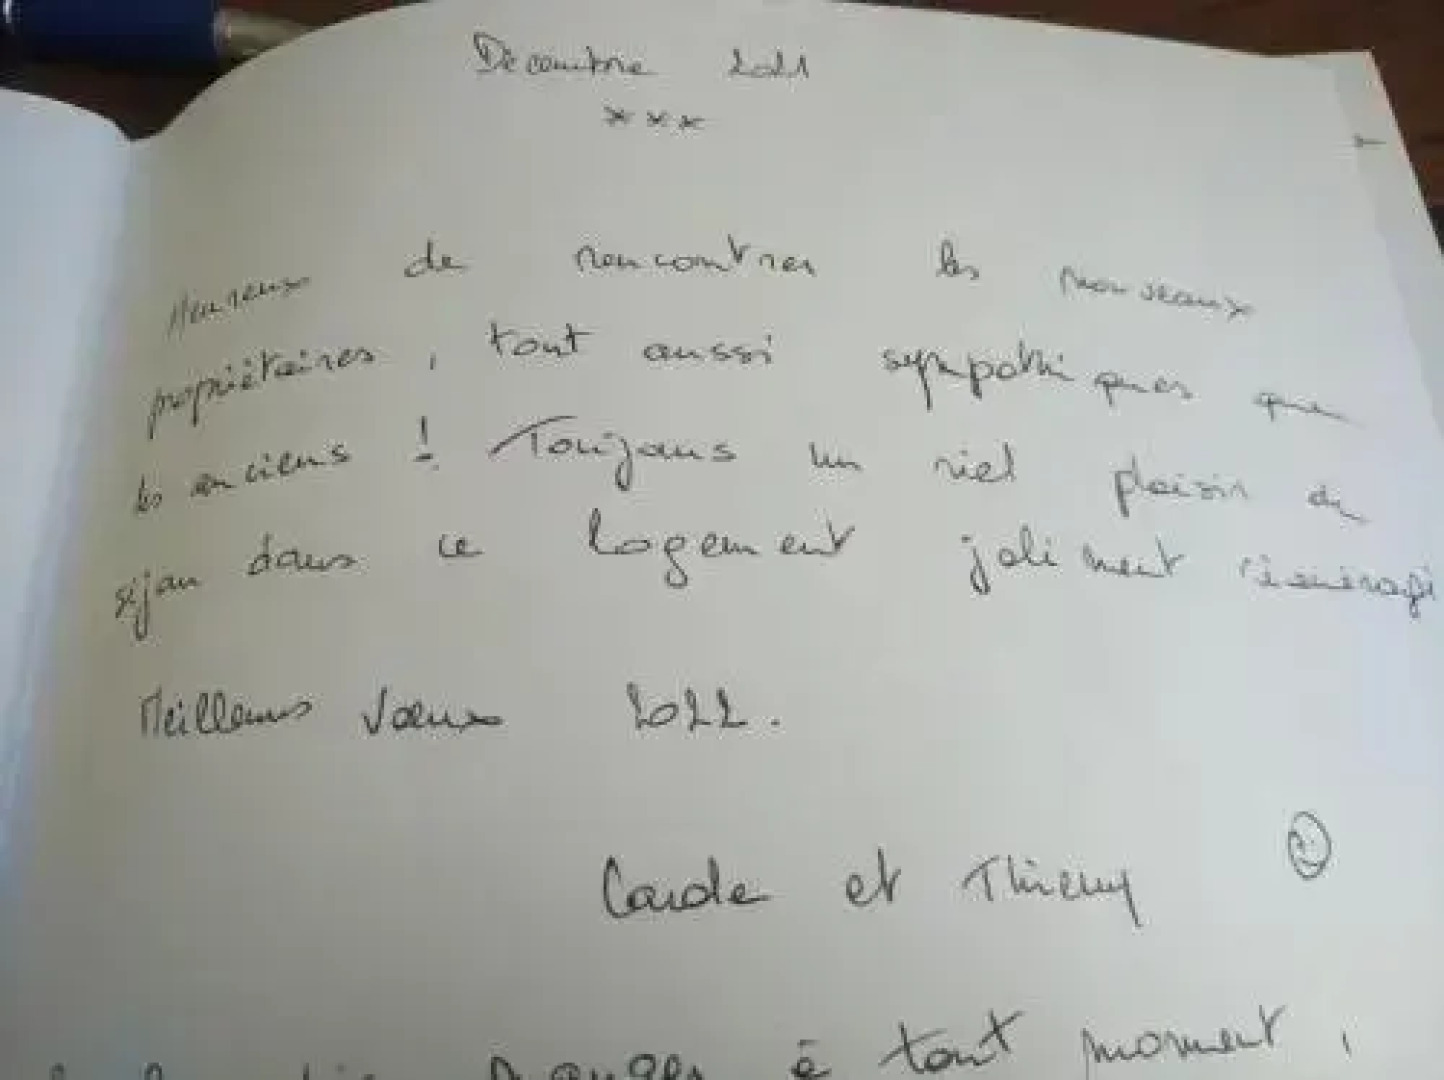 Décembre 2021
***
Heureux de rencontrer les nouveaux
propriétaires, tout aussi sympathiques que
les anciens ! Toujours un réel plaisir du
séjour dans ce logement joliment réaménagé
Meilleurs vœux 2022.
Carole et Thierry
à tout moment,